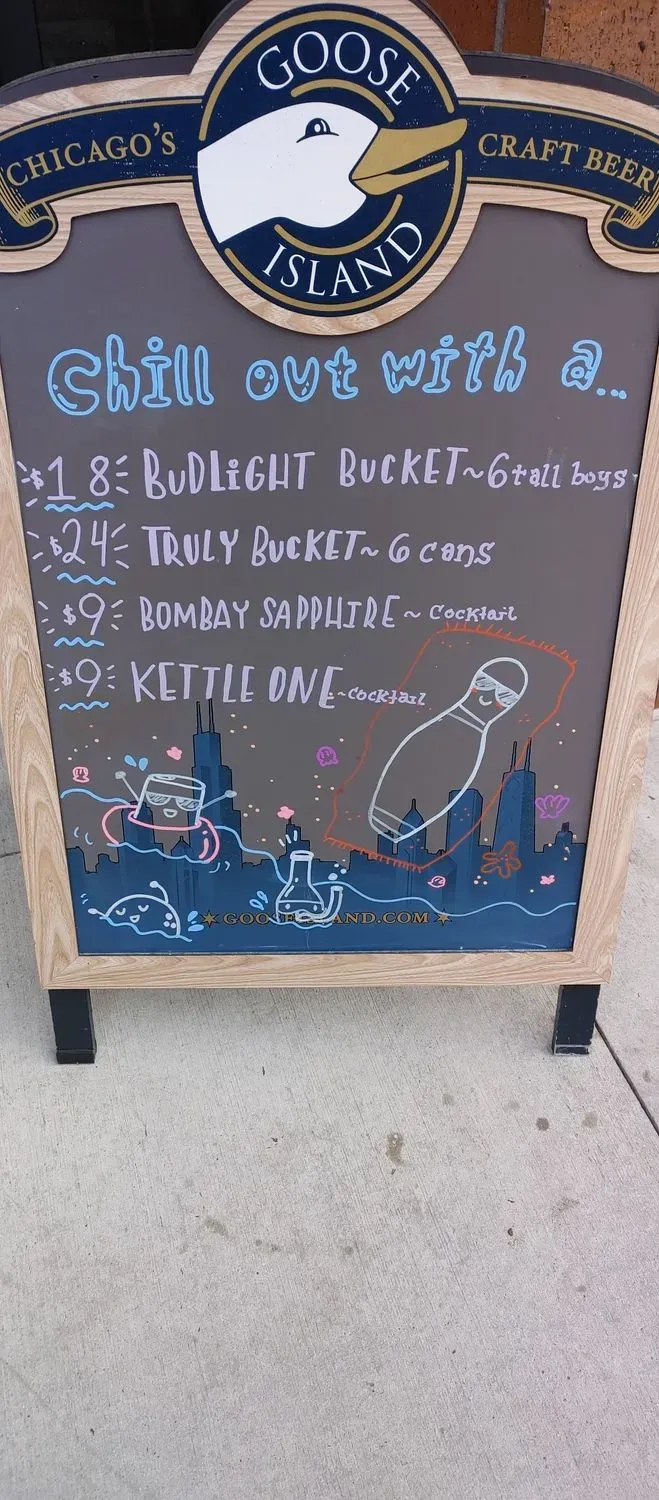 GOOSE
CHICAGO'S
CRAFT BEER
ISLAND
Chill out with a...
$18 BUDLIGHT BUCKET~6 tall boys
$24 TRULY BUCKET~ 6 cans
$9 BOMBAY SAPPHIRE ~ Cocktail
$9 KETTLE ONE ~cocktail
GOOSEISLAND.COM